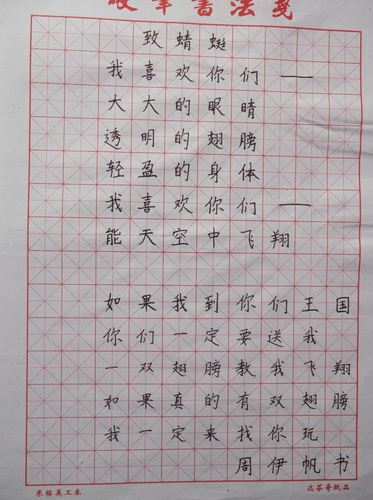 書法笺
致蜻蜓
我喜欢你们——
大大的眼睛
透明的翅膀
轻盈的身体
我喜欢你们——
能天空中飞翔
如果我到你们王国
你们一定要送我
一双翅膀教我飞翔
如果真的有双翅膀
我一定来找你玩
周伊帆书
米格美工本
达芬奇纸品